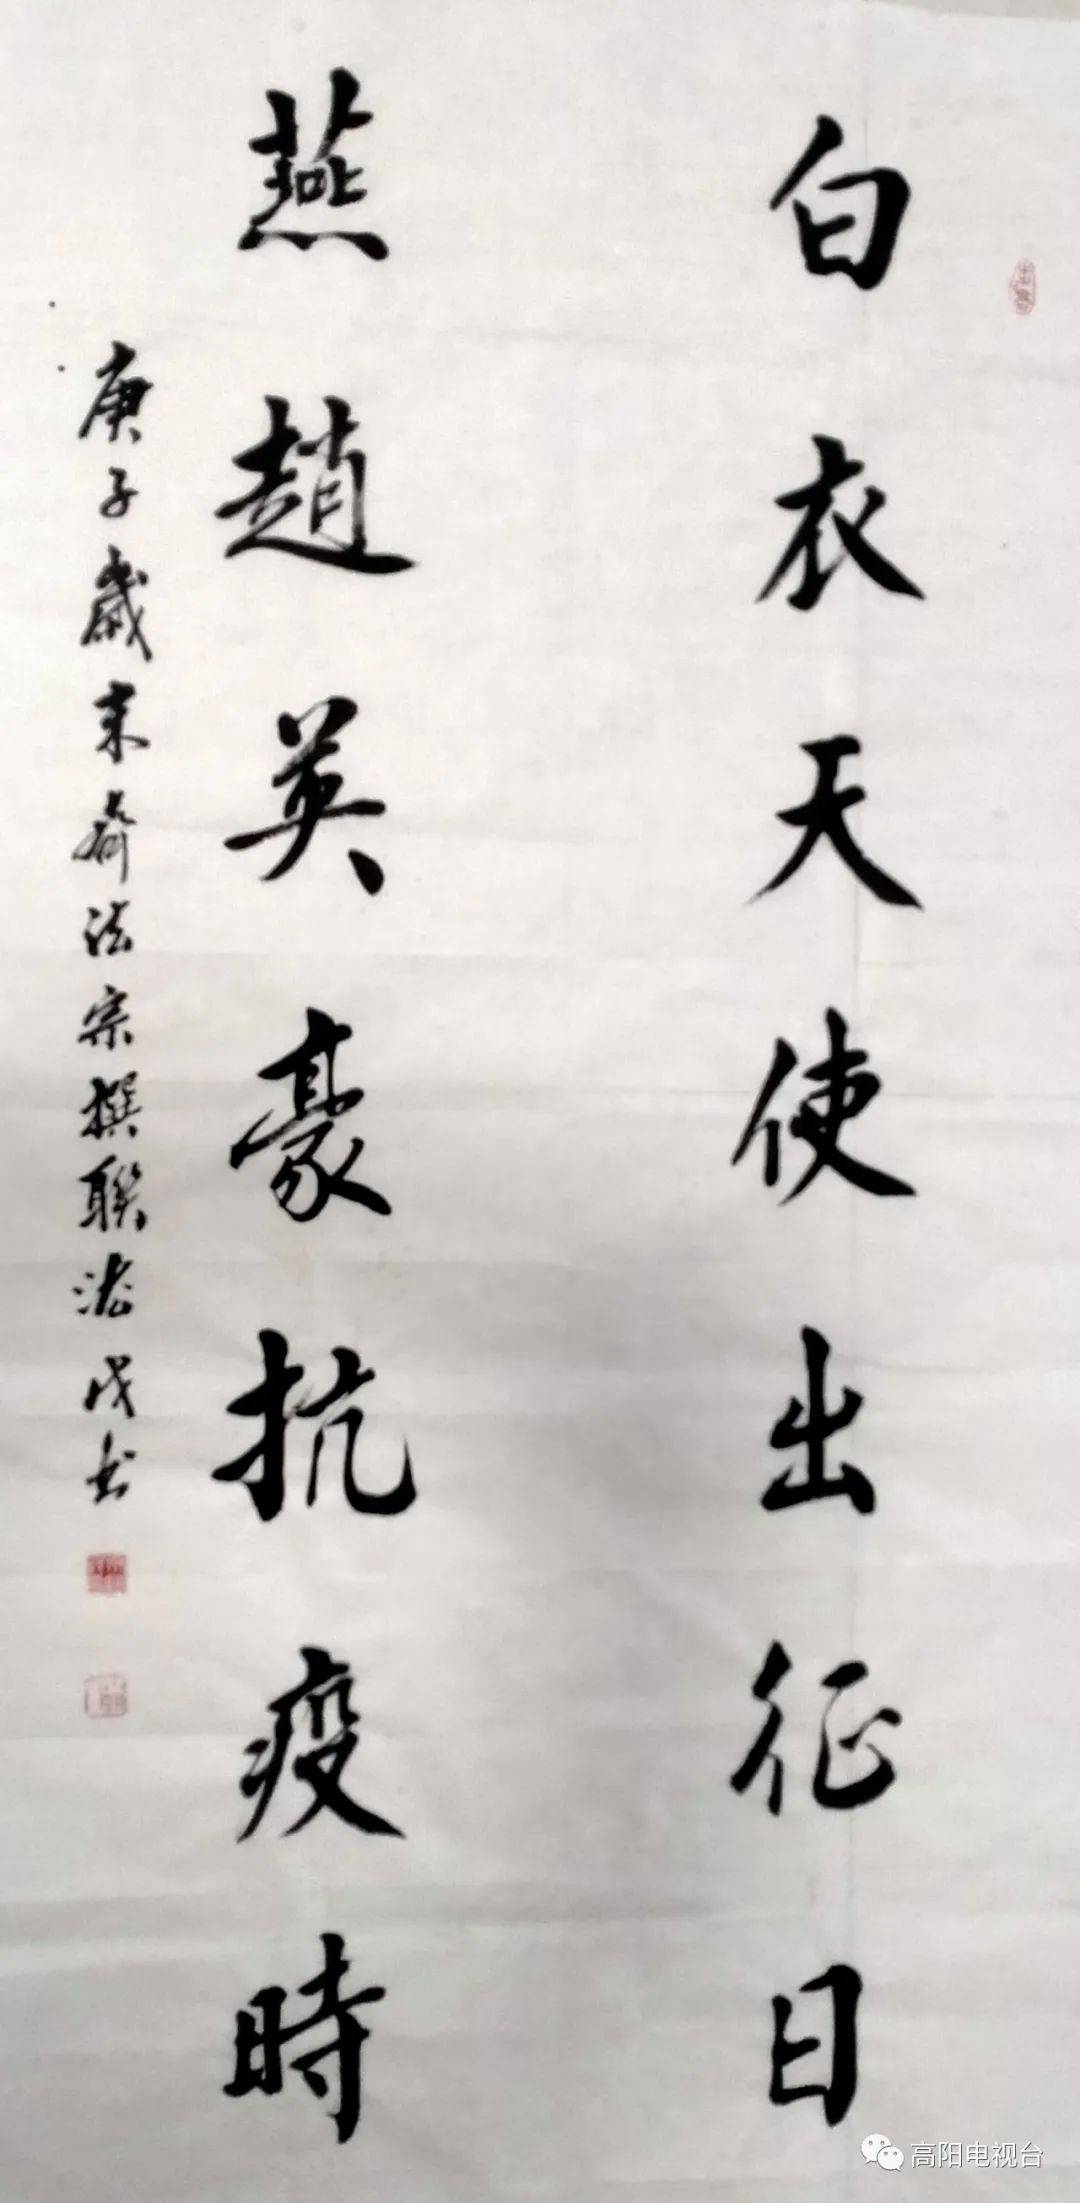 白衣天使出征日
燕趙英豪抗疫時
庚子歲末齊法宗撰聯法戊书
高阳电视台